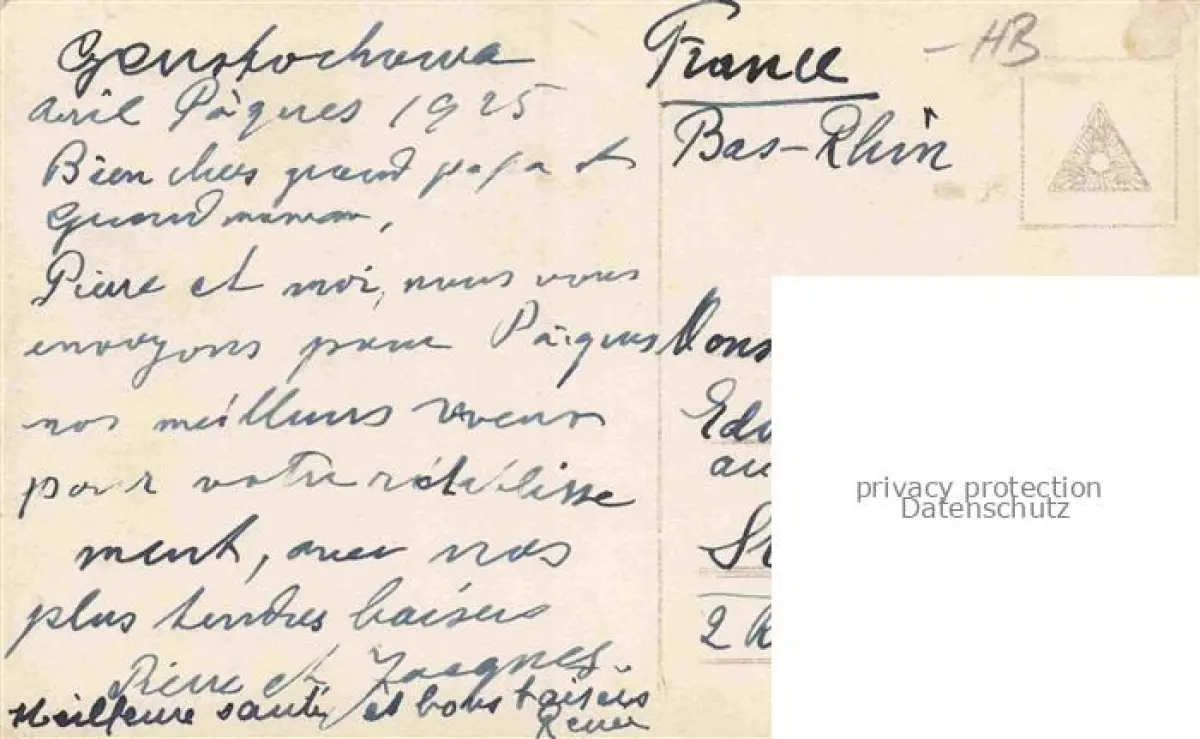 Czenstochowa
avril Pâques 1925
Bien chers grand papa et
grand maman,
Pierre et moi, nous vous
envoyons pour Pâques
nos meilleurs voeux
pour votre rétablisse
ment, avec nos
plus tendres baisers
Pierre et Jacques.
Meilleure santé et bons baisers
France
Bas-Rhin
HB
Mons
Edo
au
St
2 R
privacy protection
Datenschutz